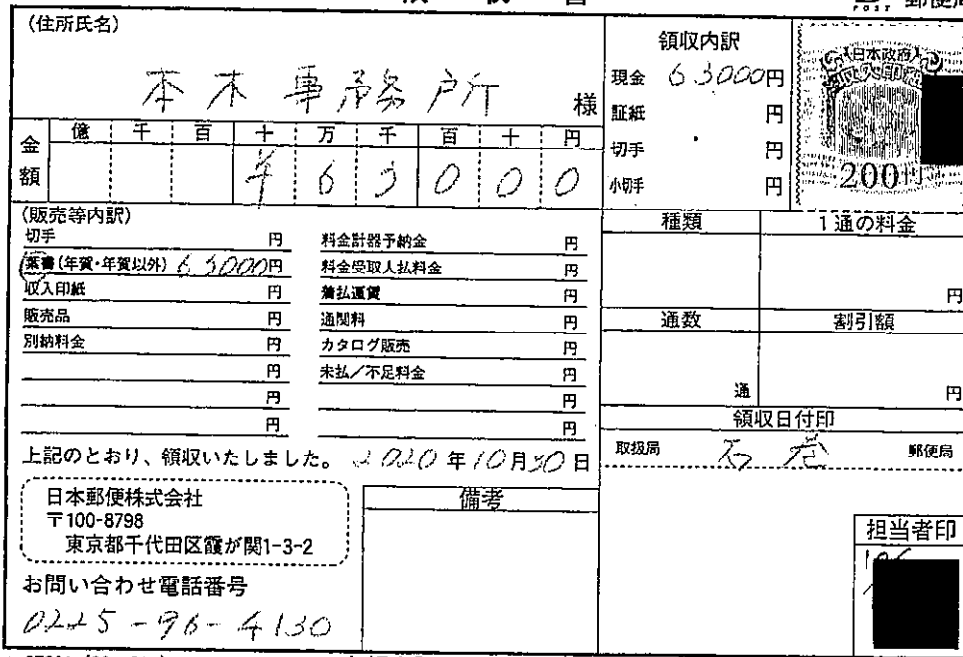 郵便局
(住所氏名)
本木事務所 様
金額 億 千 百 十 万 千 百 十 円
¥ 6 3 0 0 0
領収内訳
現金 63000円
証紙 円
切手 円
小切手 円
日本政府
収入印紙
200円
(販売等内訳)
切手 円
葉書(年賀・年賀以外) 63000円
収入印紙 円
販売品 円
別納料金 円
円
円
円
料金計器予納金 円
料金受取人払料金 円
着払運賃 円
通関料 円
カタログ販売 円
未払/不足料金 円
円
円
種類 1通の料金
円
通数 割引額
通 円
領収日付印
取扱局 石巻 郵便局
上記のとおり、領収いたしました。 2020年10月30日
日本郵便株式会社
〒100-8798
東京都千代田区霞が関1-3-2
お問い合わせ電話番号
0225-96-4130
備考
担当者印